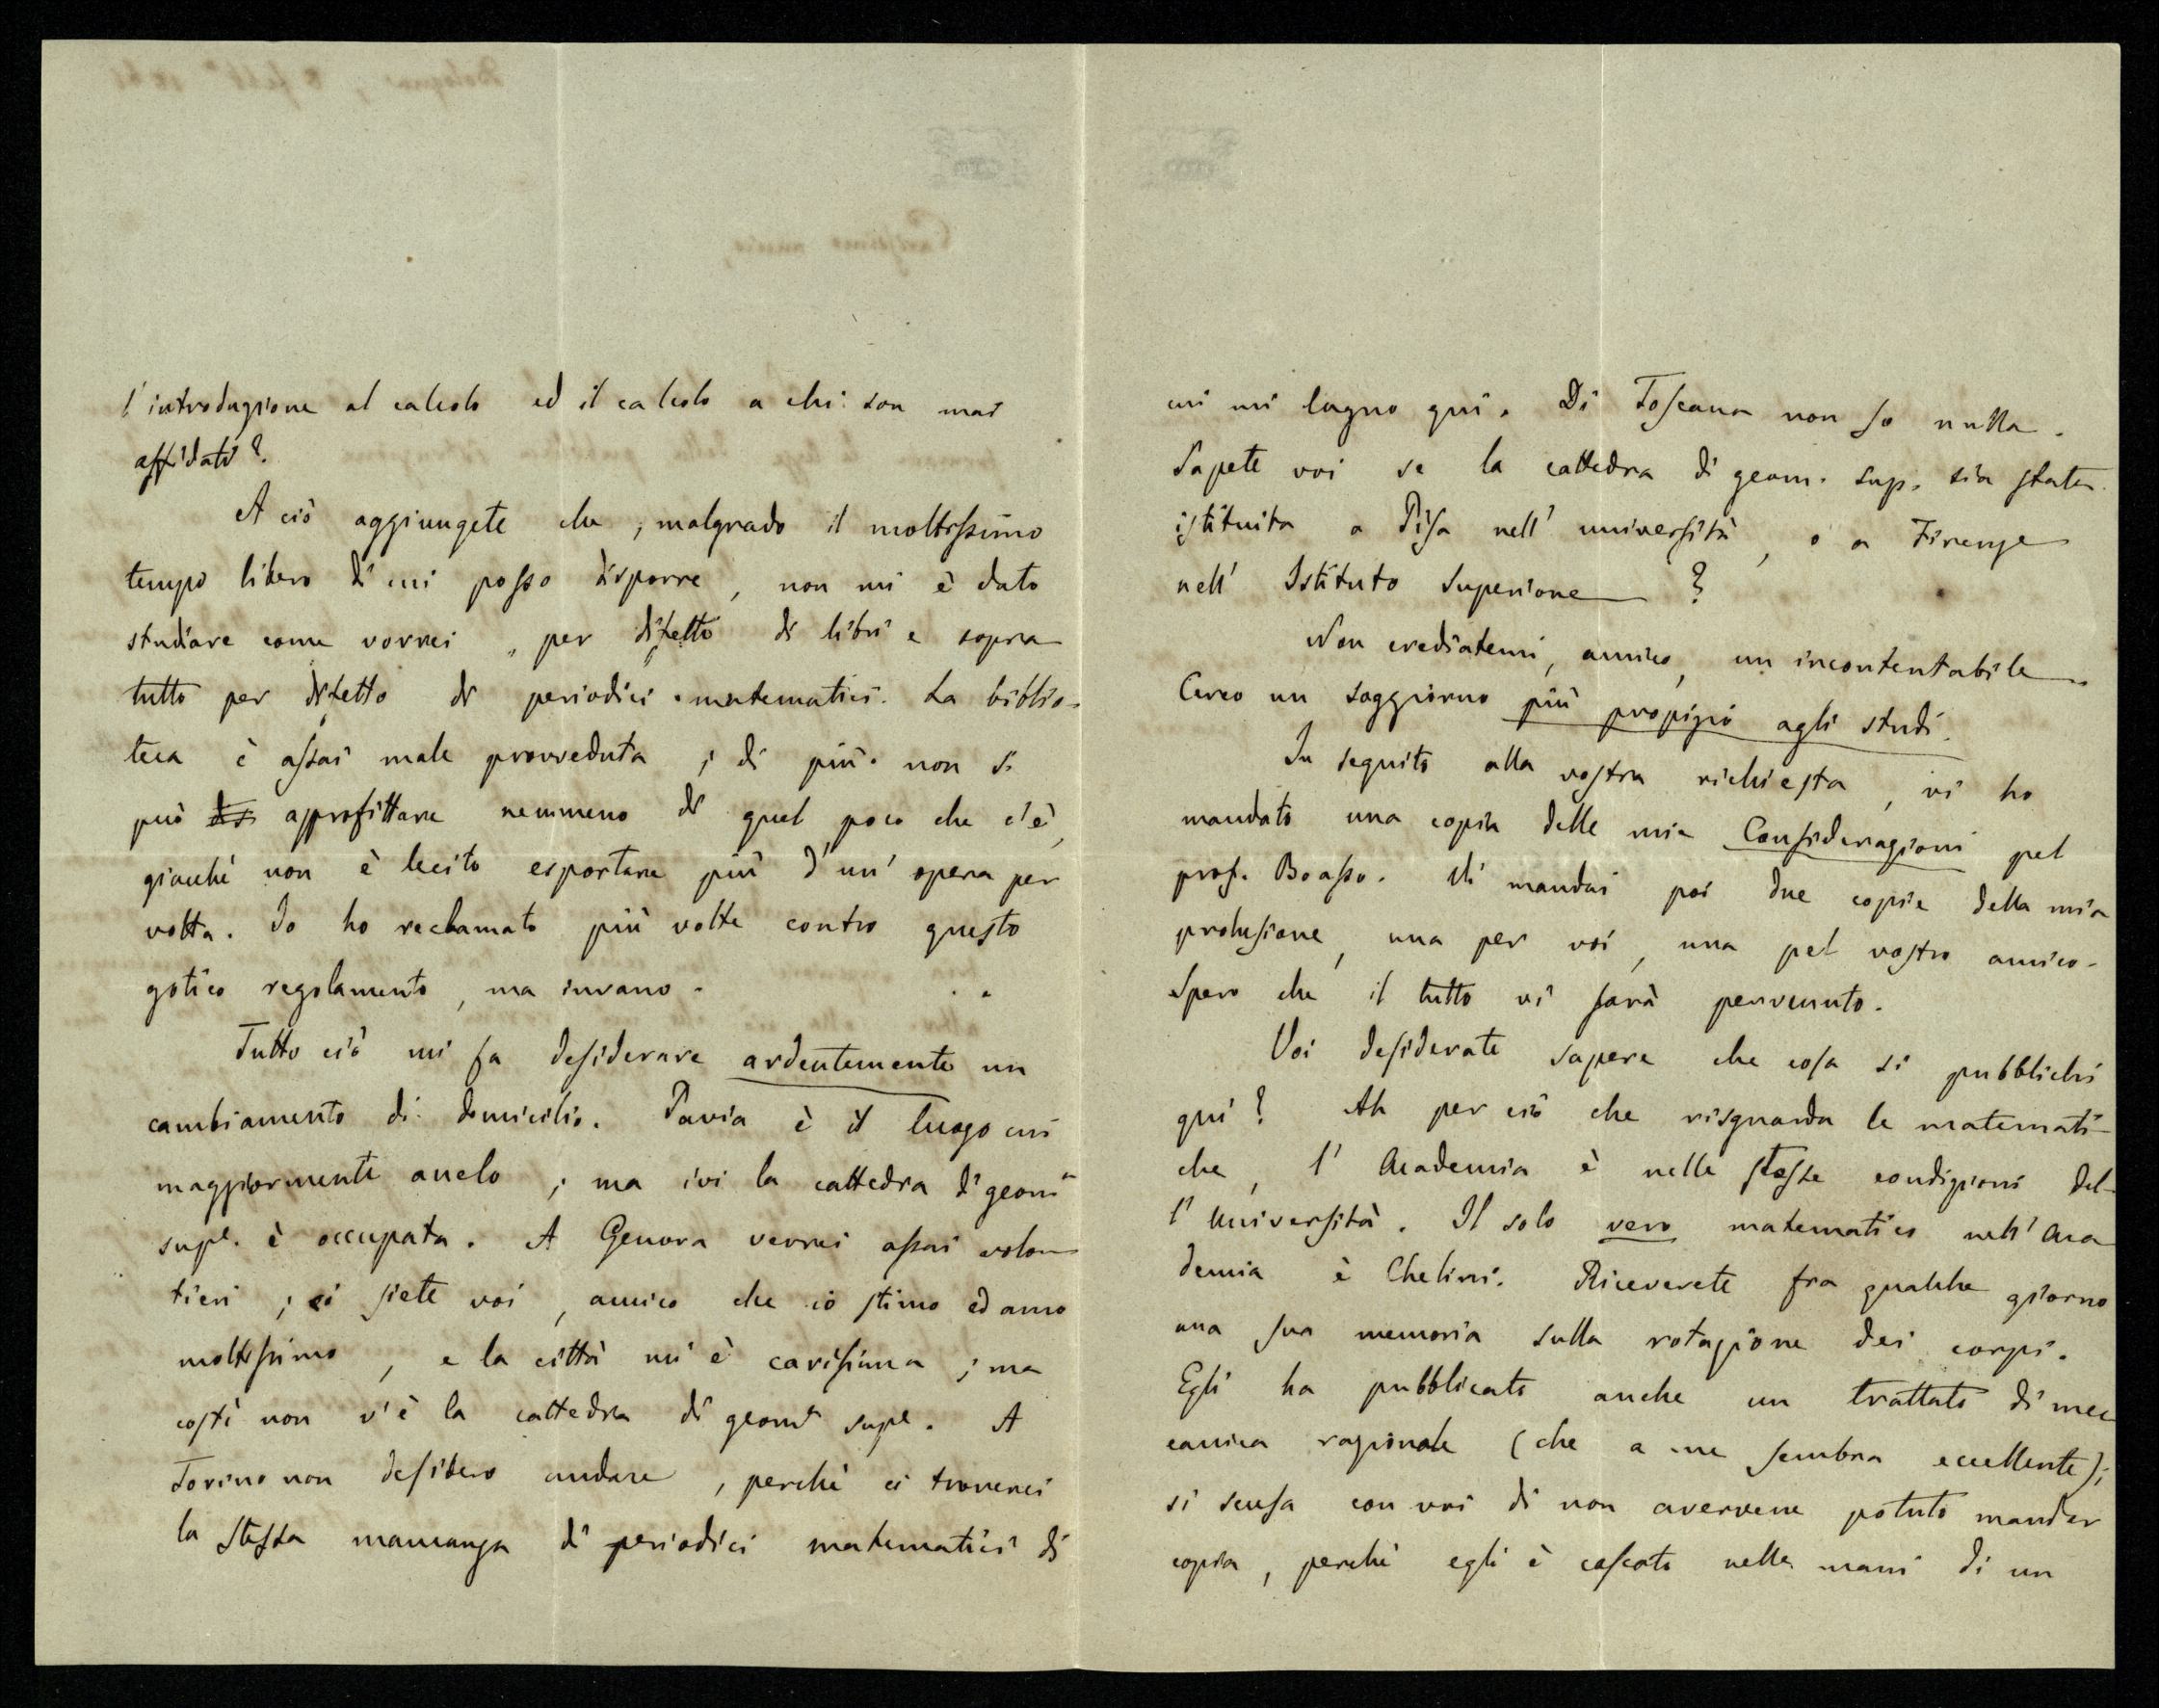 l'introduzione al calcolo ed il calcolo a chi son mai
affidati?
A ciò aggiungete che, malgrado il moltissimo
tempo libero di cui posso disporre, non mi è dato
studiare come vorrei, per difetto di libri e sopra
tutto per difetto di periodici matematici. La biblio-
teca è assai male provveduta; di più non si
può approfittare nemmeno di quel poco che c'è,
giacchè non è lecito esportare più d'un' opera per
volta. Io ho reclamato più volte contro questo
gotico regolamento, ma invano.
Tutto ciò mi fa desiderare ardentemente un
cambiamento di domicilio. Pavia è il luogo cui
maggiormente anelo; ma ivi la cattedra di geomª
supe. è occupata. A Genova verrei assai volon-
tieri; ci siete voi, amico che io stimo ed amo
moltissimo, e la città mi è carissima; ma
costì non v'è la cattedra di geomª supe. A
Torino non desidero andare, perchè ci troverei
la stessa mancanza di periodici matematici di
cui mi lagno qui. Di Toscana non so nulla.
Sapete voi se la cattedra di geom. sup. sia stata
istituita a Pisa nell' università, o a Firenze
nell' Istituto Superiore?
Non crediatemi, amico, un incontentabile.
Cerco un soggiorno più propizio agli studi.
In seguito alla vostra richiesta, vi ho
mandato una copia delle mie Considerazioni pel
prof. Boasso. Vi mandai poi due copie della mia
prolusione, una per voi, una pel vostro amico.
Spero che il tutto vi sarà pervenuto.
Voi desiderate sapere che cosa si pubblichi
qui? Ah per ciò che risguarda le matemati-
che, l' Accademia è nelle stesse condizioni del-
l' Università. Il solo vero matematico nell' Acca
demia è Chelini. Riceverete fra qualche giorno
una sua memoria sulla rotazione dei corpi.
Egli ha pubblicato anche un trattato di mec
canica razionale (che a me sembra eccellente);
si scusa con voi di non avervene potuto mandar
copia, perchè egli è cascato nelle mani di un